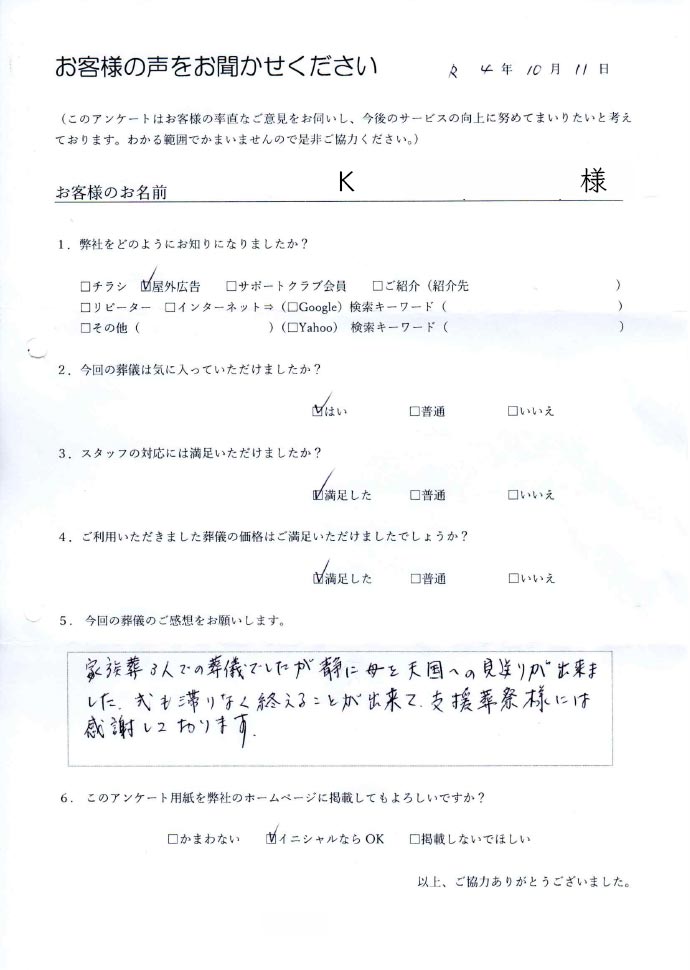 お客様の声をお聞かせください R 4年 10月 11日
（このアンケートはお客様の率直なご意見をお伺いし、今後のサービスの向上に努めてまいりたいと考え
ております。わかる範囲でかまいませんので是非ご協力ください。）
お客様のお名前 K 様
1．弊社をどのようにお知りになりましたか？
□チラシ ☑屋外広告 □サポートクラブ会員 □ご紹介（紹介先 ）
□リピーター □インターネット⇒（□Google）検索キーワード（ ）
□その他（ ）（□Yahoo） 検索キーワード（ ）
2．今回の葬儀は気に入っていただけましたか？
☑はい □普通 □いいえ
3．スタッフの対応には満足いただけましたか？
☑満足した □普通 □いいえ
4．ご利用いただきました葬儀の価格はご満足いただけましたでしょうか？
☑満足した □普通 □いいえ
5． 今回の葬儀のご感想をお願いします。
家族葬3人での葬儀でしたが静に母を天国への見送りが出来ま
した。式も滞りなく終えることが出来て、支援葬祭様には
感謝しております。
6． このアンケート用紙を弊社のホームページに掲載してもよろしいですか？
□かまわない ☑イニシャルならOK □掲載しないでほしい
以上、ご協力ありがとうございました。